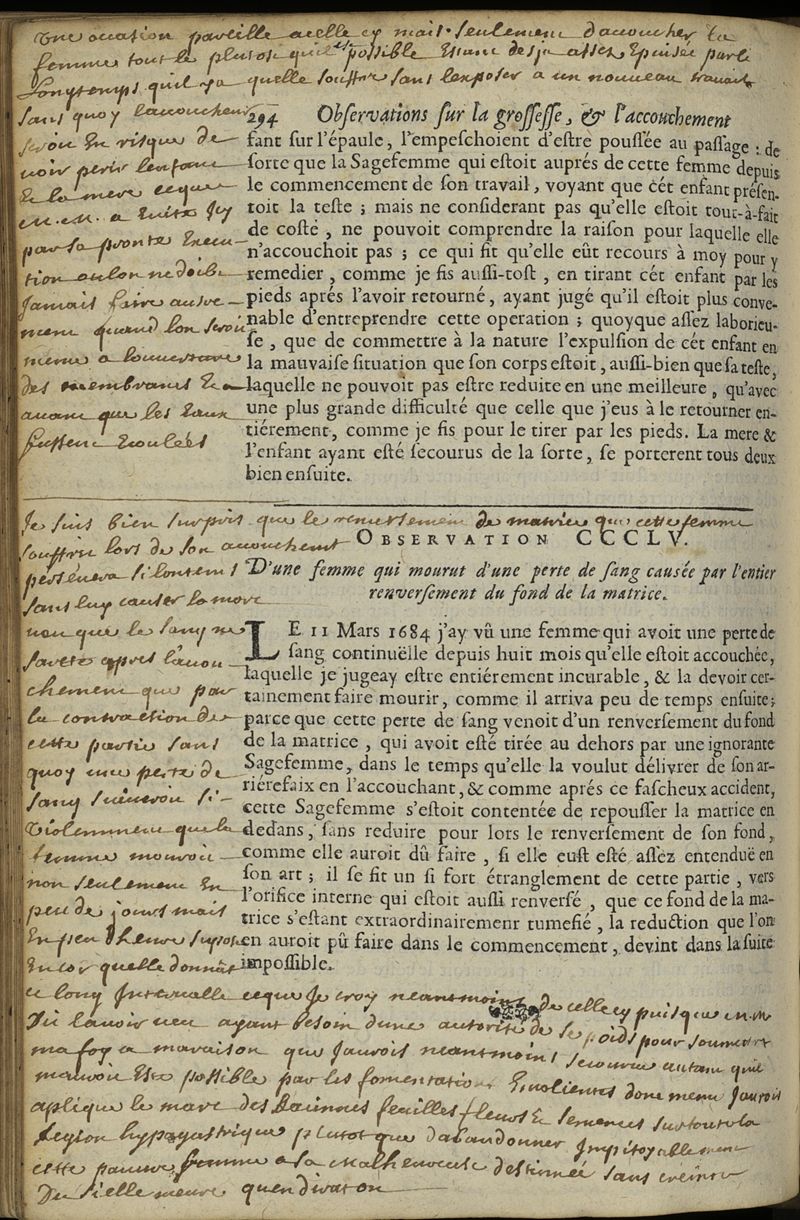 Une occasion pareille a celle cy mais seulement d'accoucher la
femme tout le plutost qu'il est possible Estant desja assez Epuisée par le
Longtemps qu'il y a quelle souffre sans l'exposer a un nouveau travail
sans quoy l'accoucheur
seroit En risque de
voir perir lenfant
Et la mere ceque
M.M. a Evité Icy
par sa pronte Execu-
tion ou lon ne doibt
Jamais faire autre-
ment quand lon seroit
mesme a louverture
des membranes Et
avant que les Eaux
fussent Ecoulées
294 Observations sur la grossesse, & l'accouchement
sant sur l'épaule, l'empeschoient d'estre poussée au passage : de
sorte que la Sagefemme qui estoit auprés de cette femme depuis
le commencement de son travail, voyant que cét enfant présen-
toit la teste ; mais ne considerant pas qu'elle estoit tout-à-fait
de costé, ne pouvoit comprendre la raison pour laquelle elle
n'accouchoit pas ; ce qui fit qu'elle eût recours à moy pour y
remedier, comme je fis aussi-tost, en tirant cét enfant par les
pieds aprés l'avoir retourné, ayant jugé qu'il estoit plus conve-
nable d'entreprendre cette operation ; quoyque assez laborieu-
se, que de commettre à la nature l'expulsion de cét enfant en
la mauvaise situation que son corps estoit, aussi-bien que sa teste,
laquelle ne pouvoit pas estre reduite en une meilleure, qu'avec
une plus grande difficulté que celle que j'eus à le retourner en-
tiérement, comme je fis pour le tirer par les pieds. La mere &
l'enfant ayant esté secourus de la sorte, se porterent tous deux
bien ensuite.
Je suis bien surpris que le renversement de matrice que cette femme
souffrit lors de son accouchement
persevera si lontems
sans luy causer la mort
non que le sang ne
sarete apres lacou-
chement que par
la contraction de
cette partie sans
quoy une perte de
sang si
violemment que la
femme mouroit
non seulement En
peu de jours mais
En peu dheure
Encor quelle donnât
OBSERVATION CCCLV.
D'une femme qui mourut d'une perte de sang causée par l'entier
renversement du fond de la matrice.
LE 11 Mars 1684 j'ay vû une femme qui avoit une perte de
sang continuëlle depuis huit mois qu'elle estoit accouchée,
laquelle je jugeay estre entiérement incurable, & la devoir cer-
tainement faire mourir, comme il arriva peu de temps ensuite ;
parce que cette perte de sang venoit d'un renversement du fond
de la matrice, qui avoit esté tirée au dehors par une ignorante
Sagefemme, dans le temps qu'elle la voulut délivrer de son ar-
riérefaix en l'accouchant, & comme aprés ce fascheux accident,
cette Sagefemme s'estoit contentée de repousser la matrice en
dedans, sans reduire pour lors le renversement de son fond,
comme elle auroit dû faire, si elle eust esté assez entenduë en
son art ; il se fit un si fort étranglement de cette partie, vers
l'orifice interne qui estoit aussi renversé, que ce fond de la ma-
trice s'estant extraordinairemenr tumefié, la reduction que l'on
en auroit pû faire dans le commencement, devint dans la suite
impossible.
ce long Intervalle ceque Je croy neantmoins de celle cy puisque M.M
Dit lavoir veu ayant besoin dune autorité de se poids pour soumettre
ma foy a ma raison que Jaurois neantmoins secourue autant quil
mauroit Esté possible par les fomentations Emolientes dont mesme Jaurois
apliqué le marc des Racinnes feuilles fleurs Et semences sur toute la
Region hypogastrique plutot que dabandonner Impitoyablement
cette pauvre femme a sa malheureuse destinée sans creinte
Du si elle meure quen dirat on